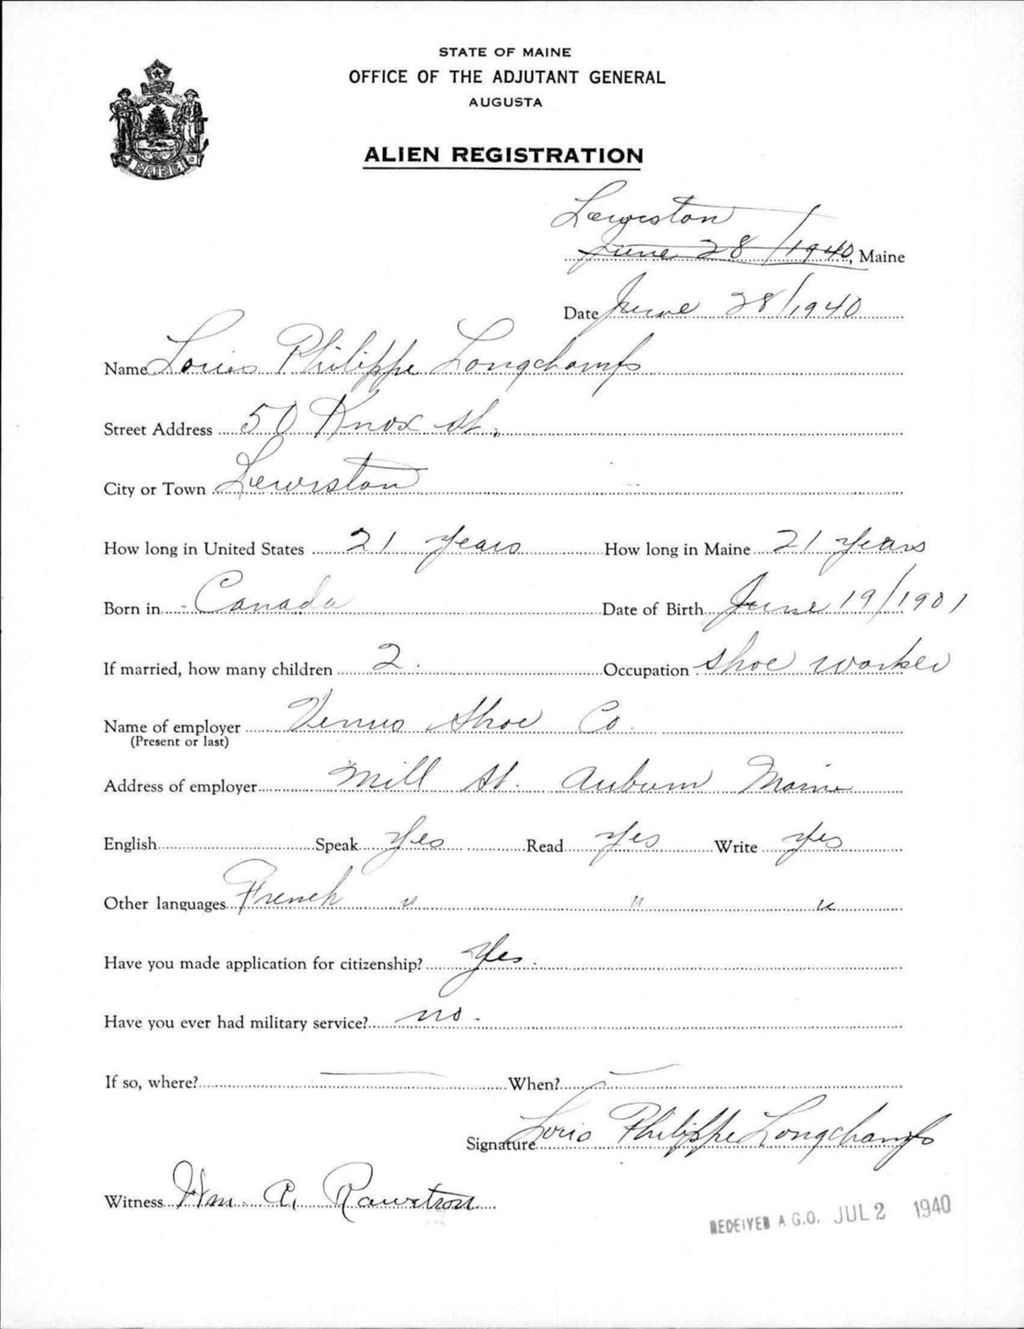 STATE OF MAINE
OFFICE OF THE ADJUTANT GENERAL
AUGUSTA
MAINE
ALIEN REGISTRATION
Lewiston
June 28/1940, Maine
Date June 28/1940
Name Louis Philippe Longchamps
Street Address 50 Knox St.
City or Town Lewiston
How long in United States 21 years How long in Maine 21 years
Born in Canada Date of Birth June 19/1901
If married, how many children 2. Occupation shoe worker
Name of employer Venus Shoe Co.
(Present or last)
Address of employer Mill St. Auburn Maine
English Speak Yes Read Yes Write Yes
Other languages French " " "
Have you made application for citizenship? Yes.
Have you ever had military service? no.
If so, where? — When? —
Signature Loris Philippe Longchamps
Witness Wm. A. Rawstron
RECEIVED A.G.O. JUL 2 1940